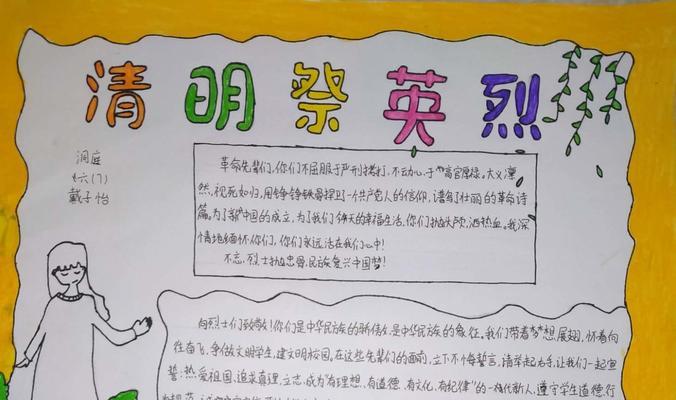 清明祭英烈
洞庭
六(7)
戴子怡
革命先辈们,你们不屈服于严刑拷打,不动心于高官厚禄。大义凛
然,视死如归,用铮铮铁骨捍卫一个共产党人的信仰,谱写了壮丽的革命诗
篇。为了新中国的成立,为了我们今天的幸福生活,你们抛头颅,洒热血。我深
情地缅怀你们,你们永远活在我们心中!
不忘烈士抛忠骨,民族复兴中国梦!
向烈士们致敬!你们是中华民族的骄傲,是中华民族的象征。我们带着梦想展翅,怀着向
往奋飞,争做文明学生,建文明校园。在这些先辈们的面前,立下不悔誓言,请举起右手,让我们一起宣
誓:热爱祖国,追求真理,立志,成为"有理想,有道德,有文化,有纪律"的一代新人,遵守学生道德行